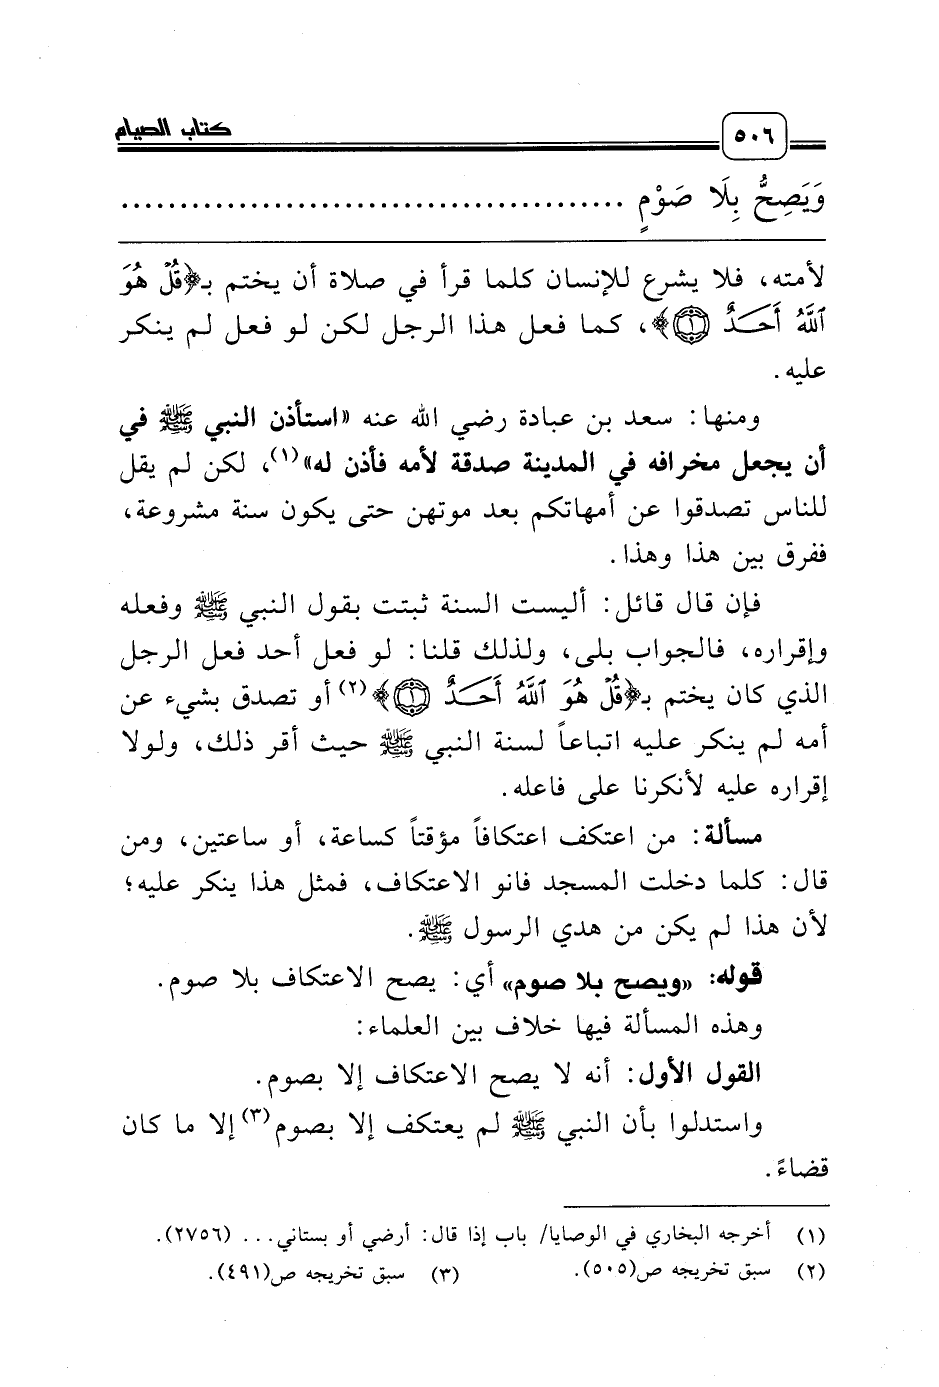 ٥٠٦ كتاب الصيام
وَيَصِحُّ بِلَا صَوْمٍ ............................................
لأمته، فلا يشرع للإنسان كلما قرأ في صلاة أن يختم بـ﴿قُلْ هُوَ
ٱللَّهُ أَحَدٌ ۝١﴾، كما فعل هذا الرجل لكن لو فعل لم ينكر
عليه.
ومنها: سعد بن عبادة رضي الله عنه «استأذن النبي ﷺ في
أن يجعل مخرافه في المدينة صدقة لأمه فأذن له»(١)، لكن لم يقل
للناس تصدقوا عن أمهاتكم بعد موتهن حتى يكون سنة مشروعة،
ففرق بين هذا وهذا.
فإن قال قائل: أليست السنة ثبتت بقول النبي ﷺ وفعله
وإقراره، فالجواب بلى، ولذلك قلنا: لو فعل أحد فعل الرجل
الذي كان يختم بـ﴿قُلْ هُوَ ٱللَّهُ أَحَدٌ ۝١﴾(٢) أو تصدق بشيء عن
أمه لم ينكر عليه اتباعاً لسنة النبي ﷺ حيث أقر ذلك، ولولا
إقراره عليه لأنكرنا على فاعله.
مسألة: من اعتكف اعتكافاً مؤقتاً كساعة، أو ساعتين، ومن
قال: كلما دخلت المسجد فانو الاعتكاف، فمثل هذا ينكر عليه؛
لأن هذا لم يكن من هدي الرسول ﷺ.
قوله: «ويصح بلا صوم» أي: يصح الاعتكاف بلا صوم.
وهذه المسألة فيها خلاف بين العلماء:
القول الأول: أنه لا يصح الاعتكاف إلا بصوم.
واستدلوا بأن النبي ﷺ لم يعتكف إلا بصوم(٣) إلا ما كان
قضاءً.
(١) أخرجه البخاري في الوصايا/ باب إذا قال: أرضي أو بستاني... (٢٧٥٦).
(٢) سبق تخريجه ص(٥٠٥). (٣) سبق تخريجه ص(٤٩١).